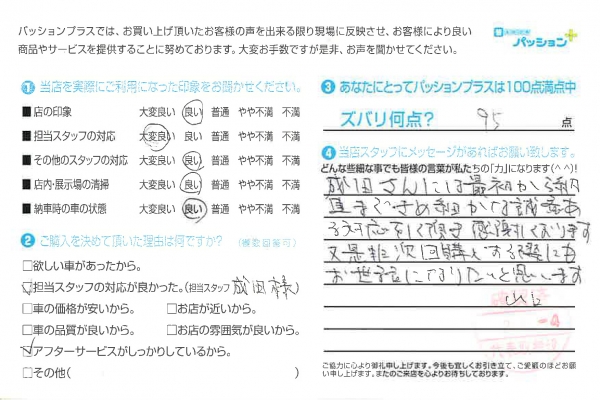 パッションプラスでは、お買い上げ頂いたお客様の声を出来る限り現場に反映させ、お客様により良い
商品やサービスを提供することに努めております。大変お手数ですが是非、お声を聞かせてください。
パッション+
1 当店を実際にご利用になった印象をお聞かせください。
■店の印象 大変良い 良い 普通 やや不満 不満
■担当スタッフの対応 大変良い 良い 普通 やや不満 不満
■その他のスタッフの対応 大変良い 良い 普通 やや不満 不満
■店内・展示場の清掃 大変良い 良い 普通 やや不満 不満
■納車時の車の状態 大変良い 良い 普通 やや不満 不満
2 ご購入を決めて頂いた理由は何ですか? (複数回答可)
□欲しい車があったから。
□担当スタッフの対応が良かった。(担当スタッフ 成田様)
□車の価格が安いから。 □お店が近いから。
□車の品質が良いから。 □お店の雰囲気が良いから。
□アフターサービスがしっかりしているから。
□その他( )
3 あなたにとってパッションプラスは100点満点中
ズバリ何点? 95 点
4 当店スタッフにメッセージがあればお願い致します。
どんな些細な事でも皆様の言葉が私たちの「力」になります(^^)!
成田さんには最初から納
車まできめ細かな誠意あ
る対応をして頂き感謝しております
又是非次回購入する際にも
お世話になりたいと思います
ご協力に心より御礼申し上げます。今後も宜しくお引き立て、ご愛顧のほどお願
い申し上げます。またのご来店を心よりお待ちしております。